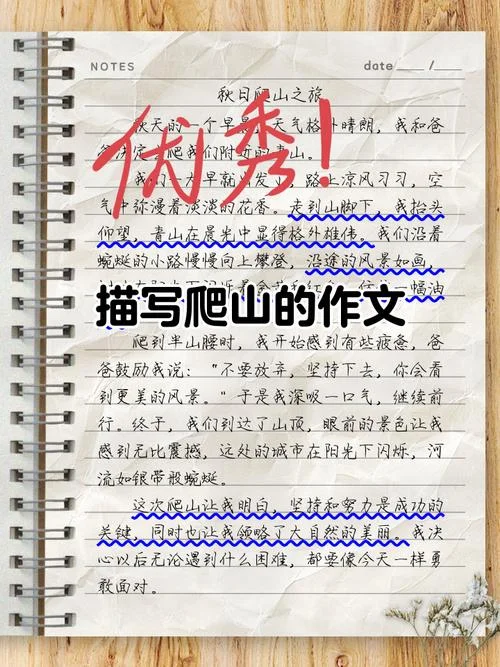 NOTES date /
秋日爬山之旅
秋天的一个早晨,天气格外晴朗,我和爸
爸决定 爬我们附近的青山。
我们一大早就 发了,路上凉风习习,空
气中弥漫着淡淡的花香。走到山脚下,我抬头
仰望,青山在晨光中显得格外雄伟。我们沿着
蜿蜒的小路慢慢向上攀登,沿途的风景如画,
一幅油
优秀!
描写爬山的作文
爬到半山腰时,我开始感到有些疲惫,爸
爸鼓励我说:"不要放弃,坚持下去,你会看
到更美的风景。"于是我深吸一口气,继续前
行。终于,我们到达了山顶,眼前的景色让我
感到无比震撼,远处的城市在阳光下闪烁,河
流如银带般蜿蜒。
这次爬山让我明白,坚持和努力是成功的
关键,同时也让我领略了大自然的美丽。我决
心以后无论遇到什么困难,都要像今天一样勇
敢面对。